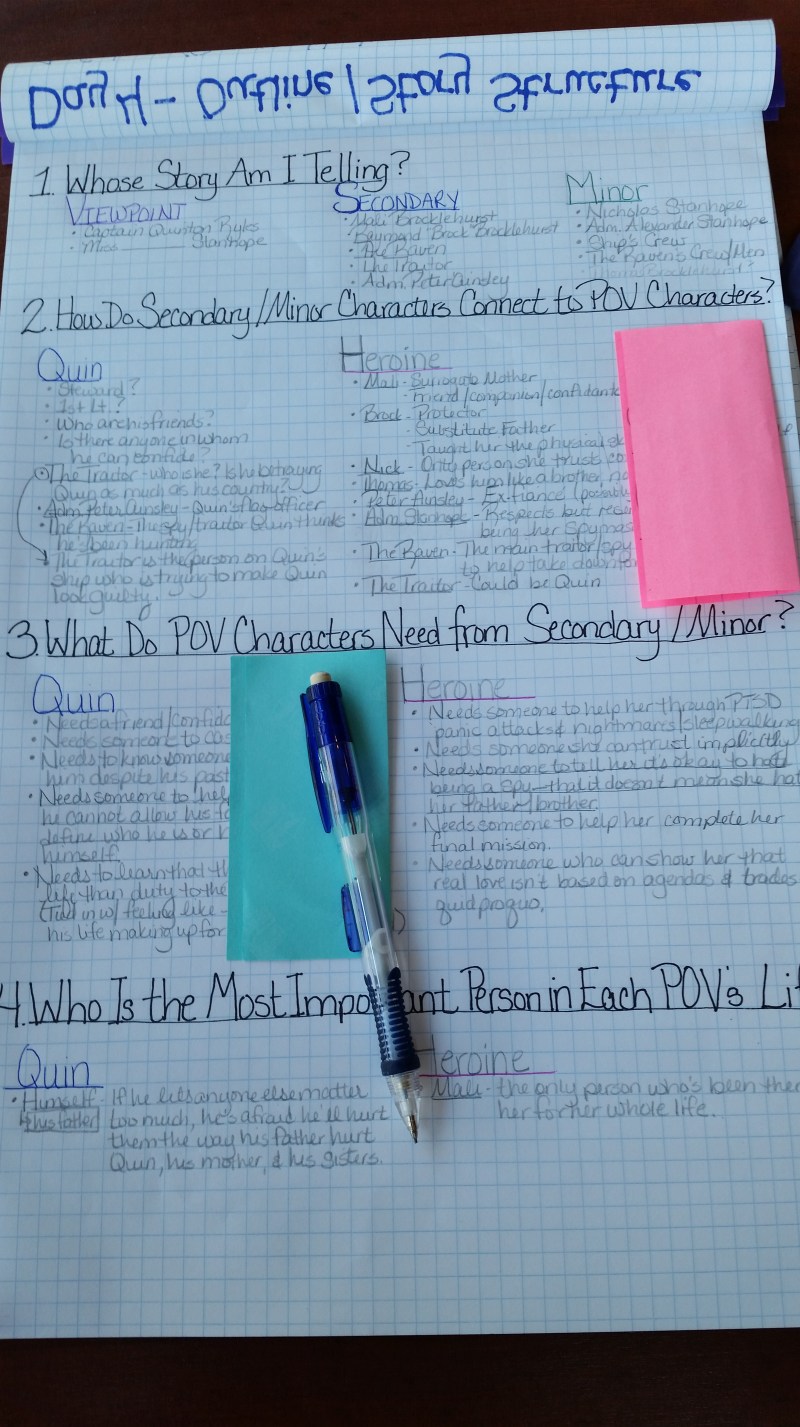 Day 4 - Outline / Story Structure
1. Whose Story Am I Telling?
VIEWPOINT
• Captain Quinton Ryles
• Miss ______ Stanhope
SECONDARY
• Mali Brocklehurst
• Raymond "Brock" Brocklehurst
• The Raven
• The Traitor
• Adm. Peter Ainsley
Minor
• Nicholas Stanhope
• Adm. Alexander Stanhope
• Ship's Crew
• The Raven's Crew/Men
2. How Do Secondary/Minor Characters Connect to POV Characters?
Quin
• Steward?
• 1st Lt.?
• Who are his friends?
• Is there anyone in whom
he can confide?
• The Traitor - who is he? Is he betraying
Quin as much as his country?
• Adm. Peter Ainsley - Quin's flag officer
• The Raven - the spy/traitor Quin thinks
he's been hunting
• The Traitor is the person on Quin's
ship who is trying to make Quin
look guilty.
Heroine
• Mali - Surrogate Mother
- friend/companion/confidante
• Brock - Protector
- Substitute Father
- Taught her the physical
• Nick - Only person she trusts
• Thomas - Loves him like a brother,
• Peter Ainsley - Ex-fiancé (possibly
• Adm. Stanhope - Respects but
being her
• The Raven - The main traitor/spy
to help take down
• The Traitor - Could be Quin
3. What Do POV Characters Need from Secondary/Minor?
Quin
• Needs a friend/
• Needs someone to
• Needs to know someone
him despite his past
• Needs someone to
he cannot allow his
define who he is or
himself.
• Needs to learn that
life than duty to the
(Tied in w/ feeling like
his life making up for
Heroine
• Needs someone to help her through PTSD
panic attacks & nightmares/sleepwalking
• Needs someone she can trust implicitly
• Needs someone to tell her it's okay to hate
being a spy—that it doesn't mean she
her father/brother.
• Needs someone to help her complete her
final mission.
• Needs someone who can show her that
real love isn't based on agendas & trades
quid pro quo.
4. Who Is the Most Important Person in Each POV's
Quin
• Himself - If he lets anyone else matter
& his father too much, he's afraid he'll hurt
them the way his father hurt
Quin, his mother, & his sisters.
Heroine
Mali - the only person who's been
her for her whole life.